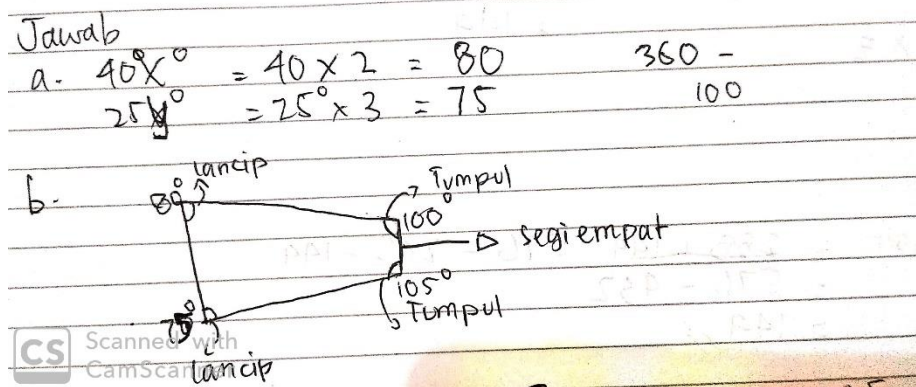 Jawab
a. 40x° = 40 x 2 = 80 360 -
25y° = 25° x 3 = 75 100
b. 80° lancip Tumpul
100°
segiempat
105°
75° Tumpul
lancip
CS Scanned with
CamScanner